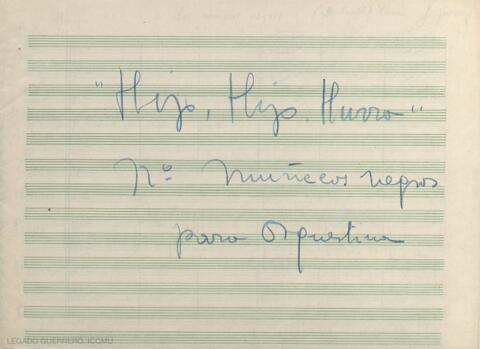 "Hip, Hip Hurra"
Nº Muñecos negros
para Agustina
LEGADO GUERRERO. ICCMU